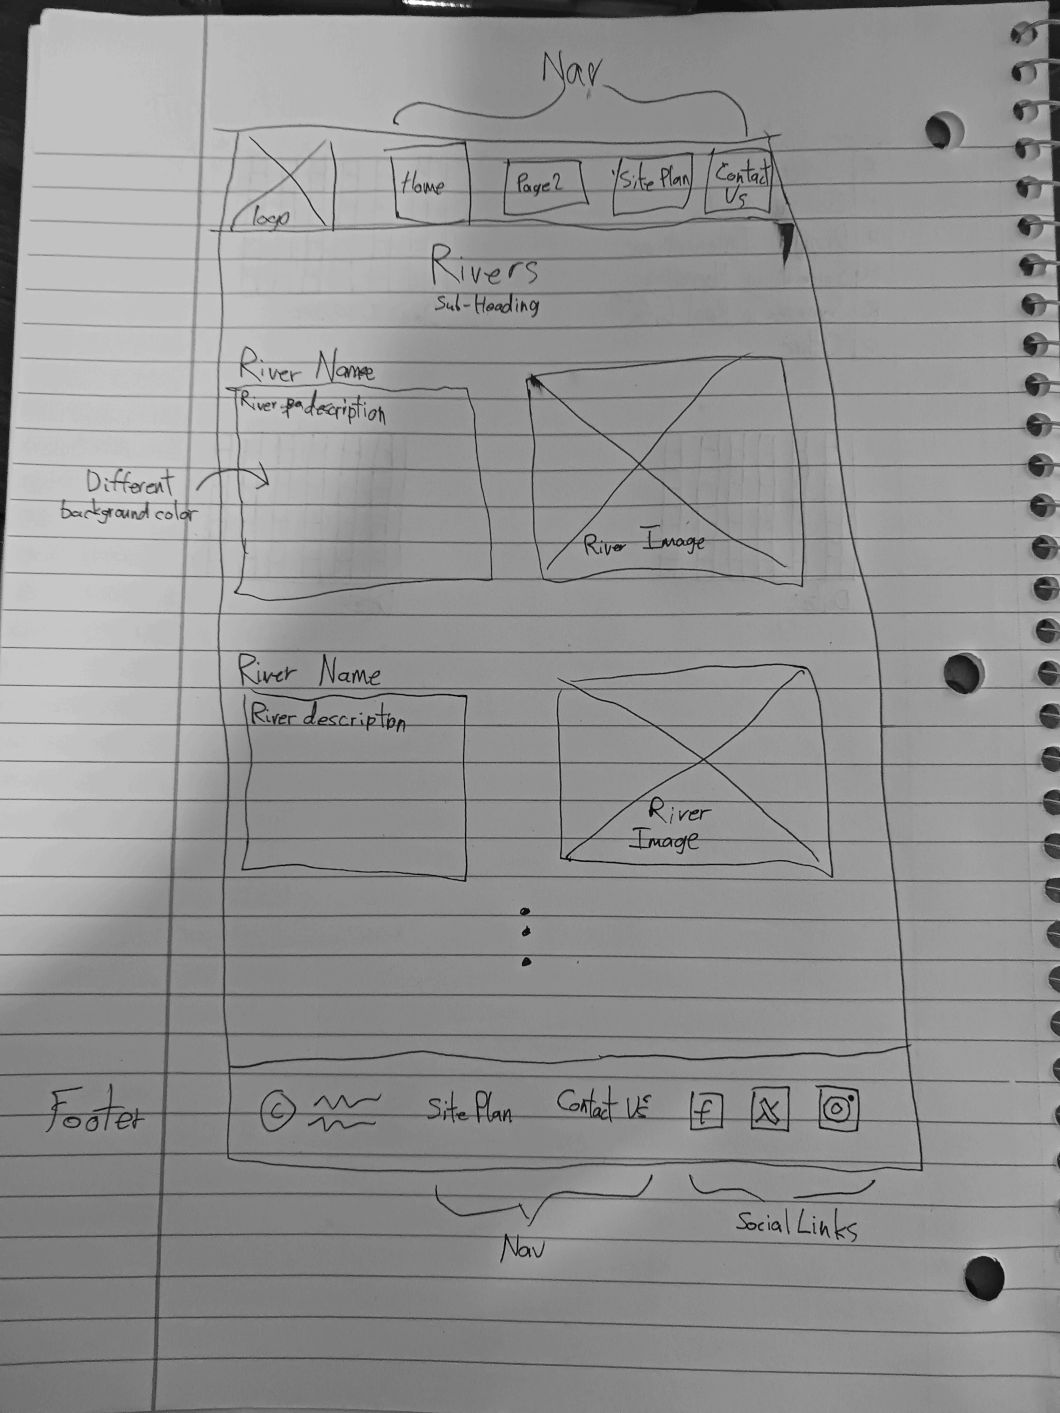 Nav
logo
Home
Page 2
Site Plan
Contact
Us
Rivers
Sub-Heading
River Name
River description
Different
background color
River Image
River Name
River description
River
Image
Footer
©
Site Plan
Contact Us
f
X
Nav
Social Links